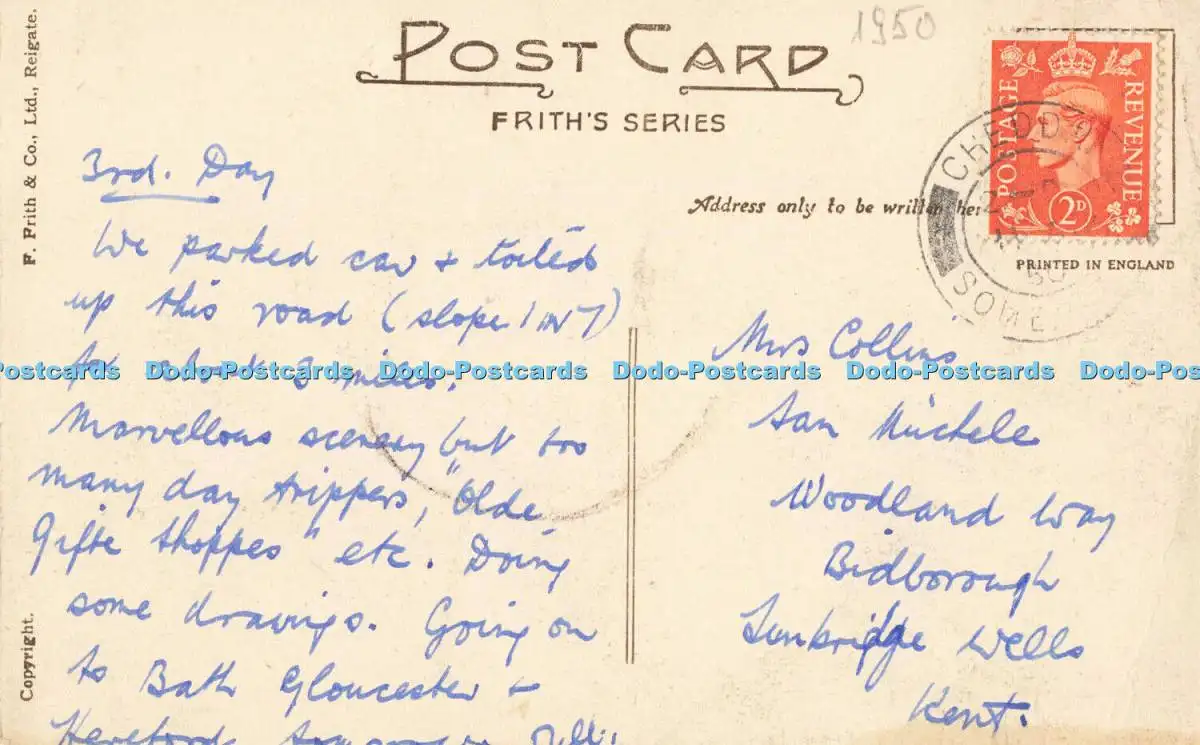 1950
POST CARD
FRITH'S SERIES
F. Frith & Co., Ltd., Reigate.
Copyright.
Address only to be written here
POSTAGE REVENUE
2D
PRINTED IN ENGLAND
CHEDDA
SOME
50
3rd. Day
We parked car & toiled
up this road (slope 1 IN 7)
for about 3 miles.
Marvellous scenery but too
many day trippers, "Olde
Gifte Shoppes" etc. Doing
some drawings. Going on
to Bath Gloucester &
Hereford tomorrow
Mrs Collins
San Michele
Woodland Way
Bidborough
Tunbridge Wells
Kent.
Dodo-Postcards Dodo-Postcards Dodo-Postcards Dodo-Postcards Dodo-Postcards Dodo-Pos